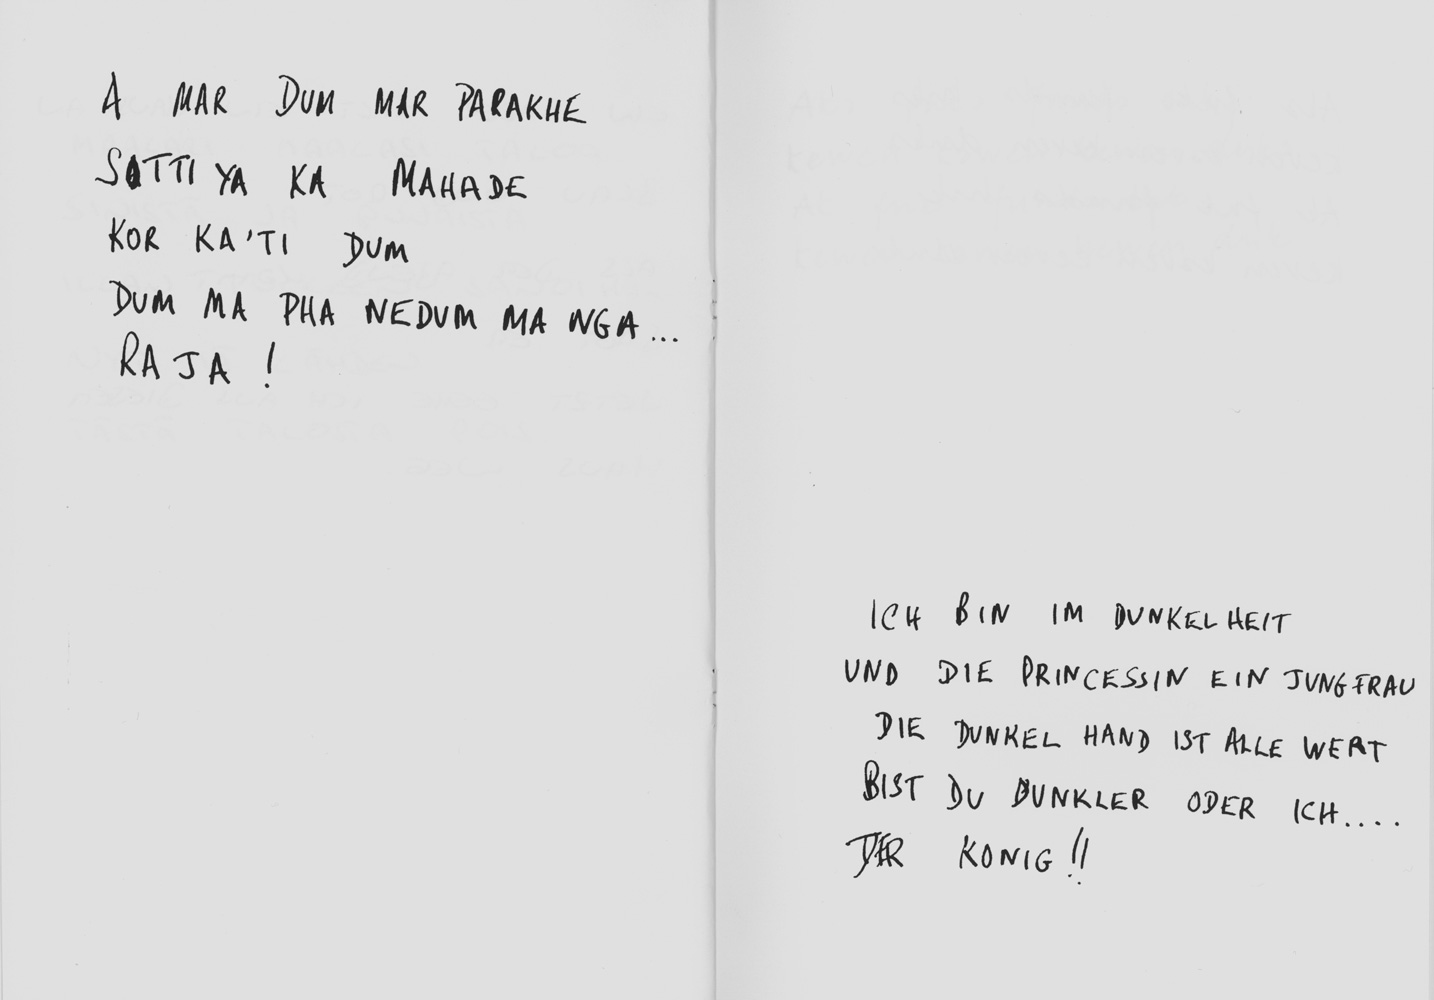 A MAR DUM MAR PARAKHE
SATTI YA KA MAHADE
KOR KA'TI DUM
DUM MA PHA NEDUM MA NGA...
RAJA !
ICH BIN IM DUNKELHEIT
UND DIE PRINCESSIN EIN JUNGFRAU
DIE DUNKEL HAND IST ALLE WERT
BIST DU DUNKLER ODER ICH....
DER KONIG !!